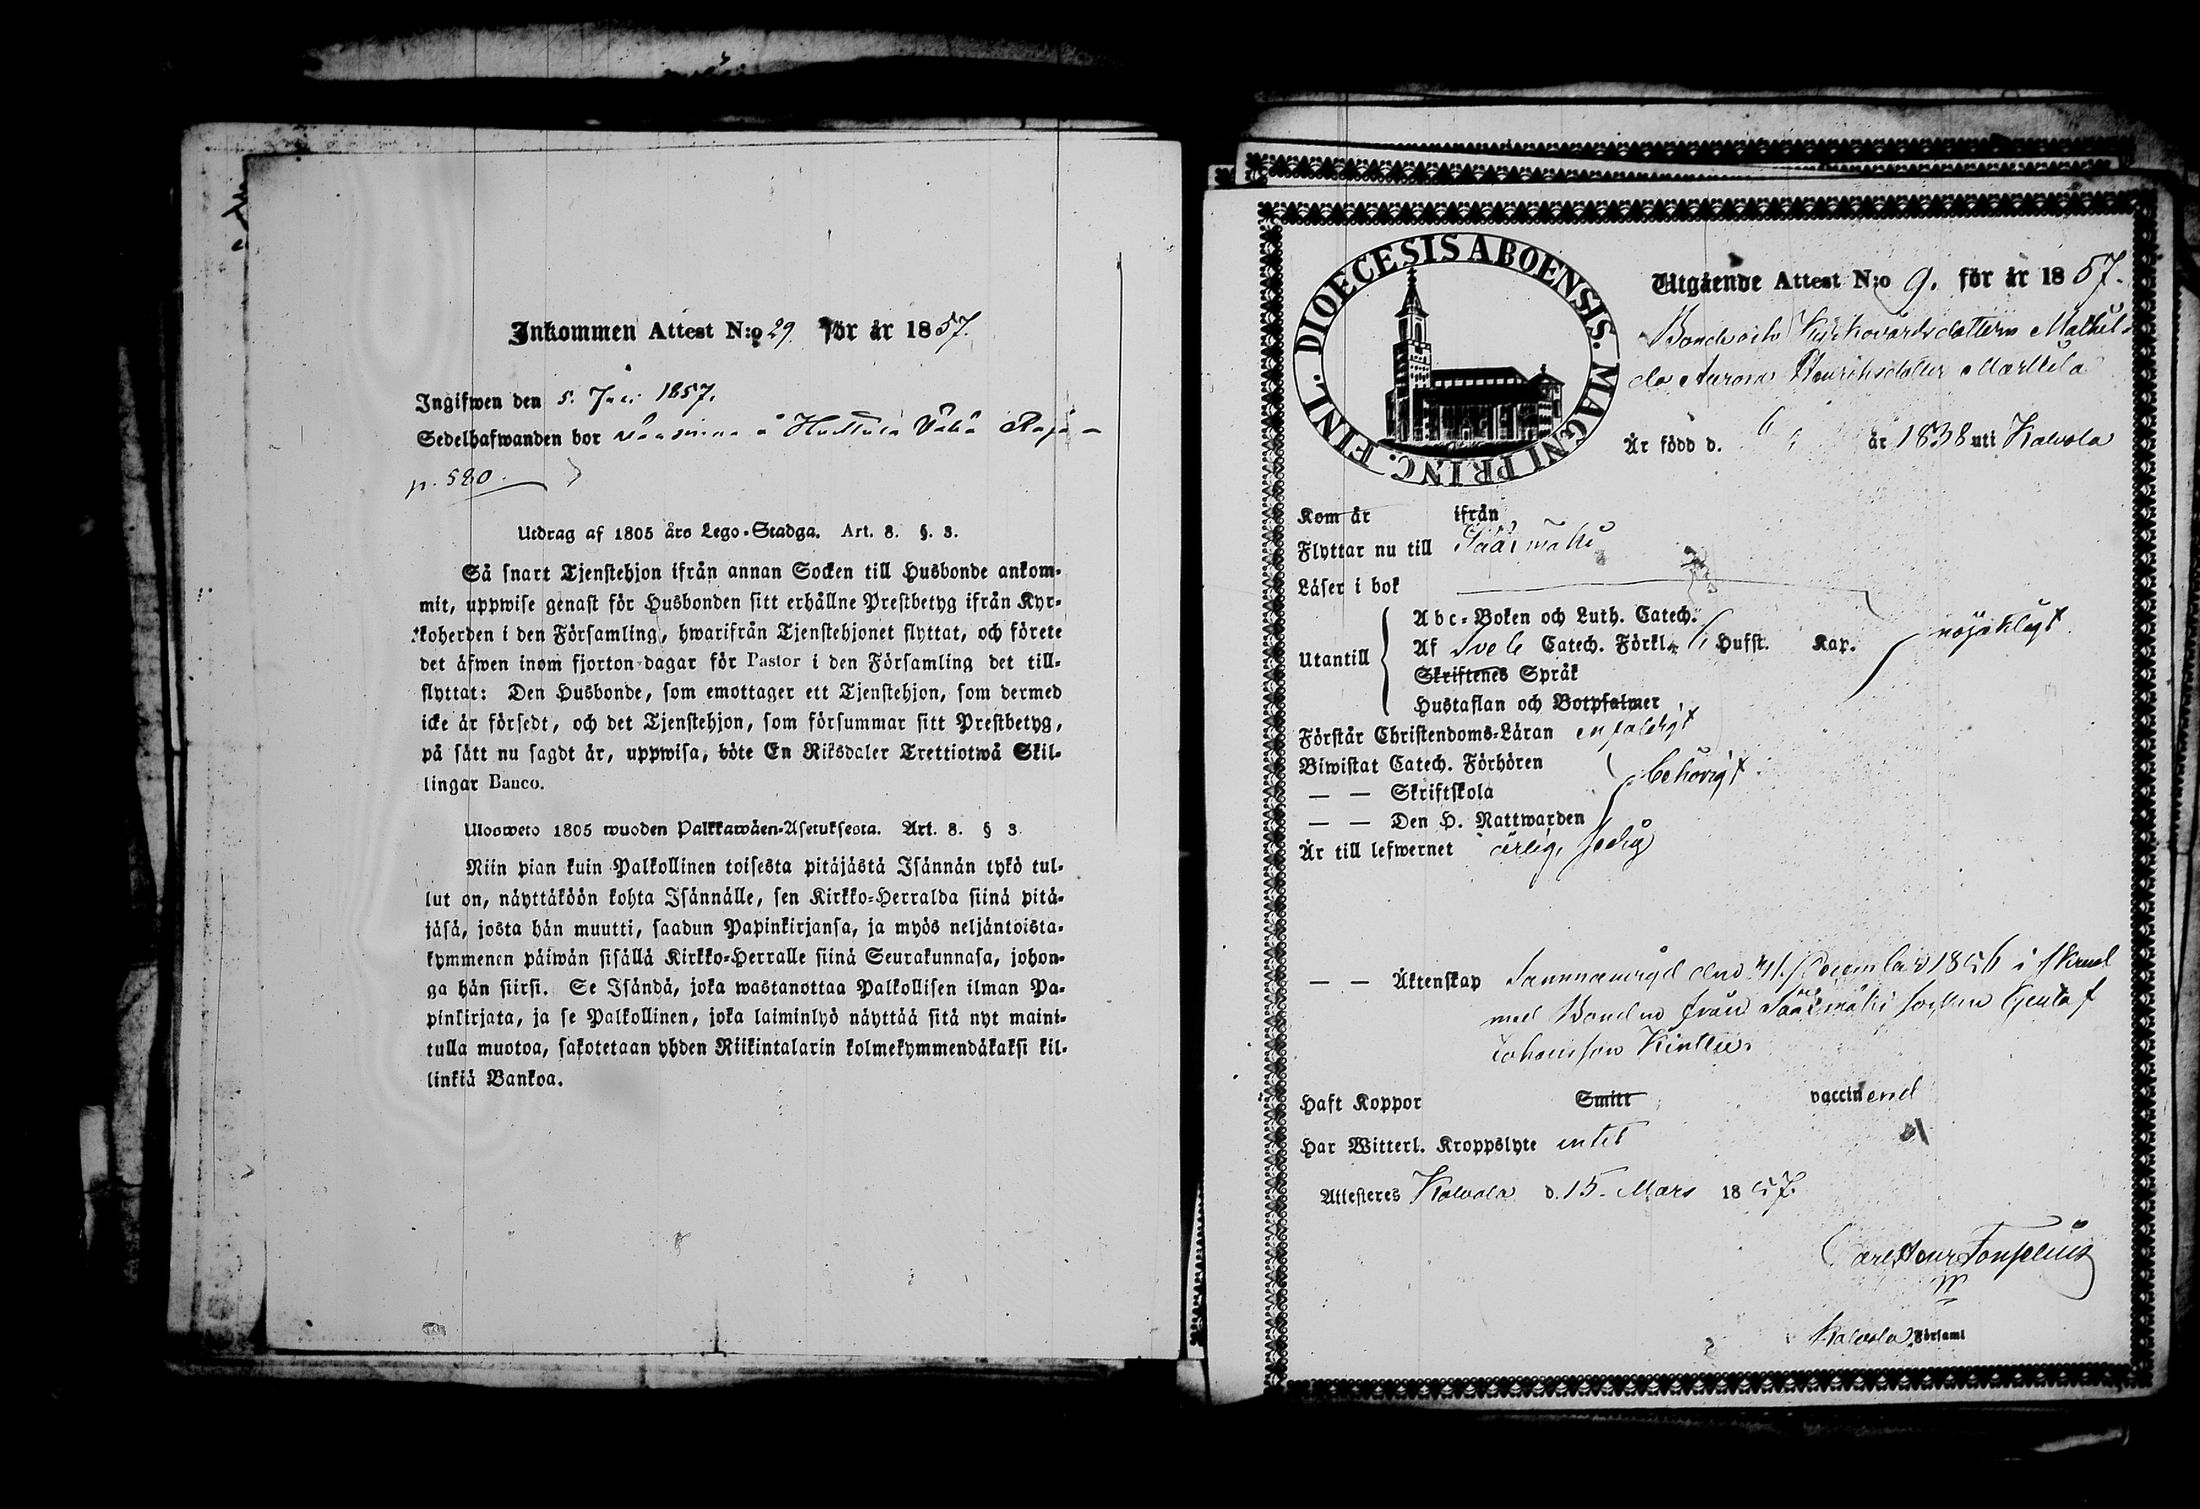 Inkommen Attest N:o 29. för år 1857.
Ingifwen den 5. Juli 1857.
Sedelhafwanden bor å Huttula
p. 580.
Utdrag af 1805 års Lego-Stadga. Art. 8. §. 3.
Så snart Tjenstehjon ifrån annan Socken till Husbonde ankom-
mit, uppwise genast för Husbonden sitt erhållne Prestbetyg ifrån Kyr-
koherden i den Församling, hwarifrån Tjenstehjonet flyttat, och förete
det äfwen inom fjorton dagar för Pastor i den Församling det till-
flyttat: Den Husbonde, som emottager ett Tjenstehjon, som dermed
icke är försedt, och det Tjenstehjon, som försummar sitt Prestbetyg,
på sätt nu sagdt är, uppwisa, böte En Riksdaler Trettiotwå Skil-
lingar Banco.
Ulosweto 1805 wuoden Palkkawäen-Asetuksesta. Art. 8. § 3
Niin pian kuin Palkollinen toisesta pitäjästä Isännän tykö tul-
lut on, näyttäköön kohta Isännälle, sen Kirkko-Herralda siinä pitä-
jäsä, josta hän muutti, saadun Papinkirjansa, ja myös neljäntoista-
kymmenen päiwän sisällä Kirkko-Herralle siinä Seurakunnasa, johon-
ga hän siirsi. Se Isändä, joka wastanottaa Palkollisen ilman Pa-
pinkirjata, ja se Palkollinen, joka laiminlyö näyttää sitä nyt maini-
tulla muotoa, sakotetaan yhden Riikintalarin kolmekymmendäkaksi kil-
linkiä Bankoa.
DIOECESIS ABOENSIS. MAGNI PRINC. FINL.
Utgående Attest N:o 9. för år 1857.
Kyrkovärdsdottern Mathil-
da Aurora Henriksdotter Marttila
Är född d. 6 år 1838 uti Kalvola
Kom år ifrån
Flyttar nu till Sääxmäki
Läser i bok
Abc-Boken och Luth. Catech.
Utantill Af Sveb. Catech. Förkl. 6 Hufst. Kap. nöjaktligt.
Skriftenes Språk
Hustaflan och Botpsalmer
Förstår Christendoms-Läran enfaldigt
Biwistat Catech. Förhören behörigt
— — Skriftskola
— — Den H. Nattwarden
Är till lefwernet ärlig, ledig
— — Äktenskap Sammanvigd den 31. December 1856 i
med Bonden från Sääxmäki socken Gustaf
Johansson
Haft Koppor Smitt vaccinerad
Har Witterl. Kroppslyte intet
Attesteres Kalvola d. 15. Mars 1857.
Carl Henr Fonselius
Kalvola Församl